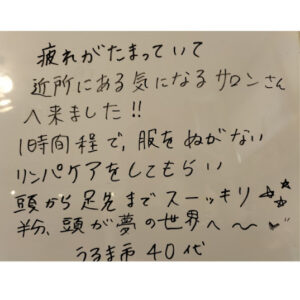 疲れがたまっていて
近所にある気になるサロンさん
へ来ました!!
1時間程で、服をぬがない
リンパケアをしてもらい
頭から足先までスーッキリ☆☆
半分、頭が夢の世界へ〜〜
うるま市 40代